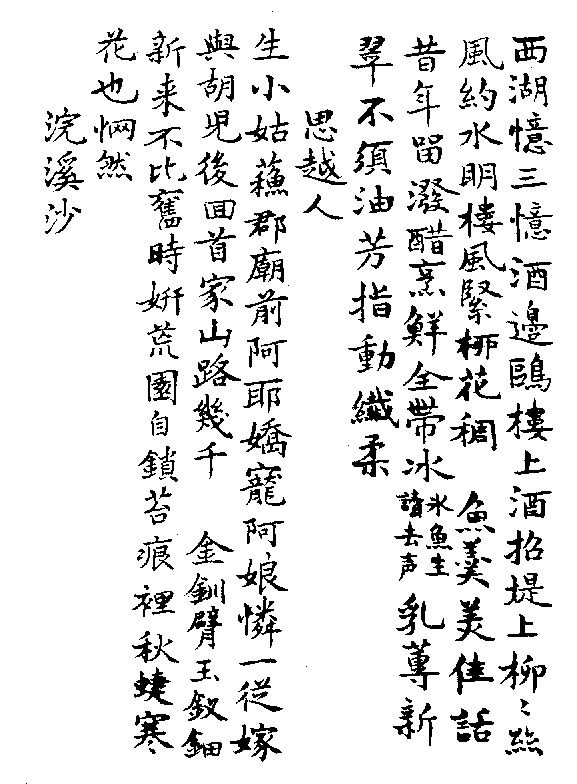 西湖憶三憶酒邊鷗樓上酒招堤上柳〻絲
風約水明樓風緊栁花稠　魚羮美佳話
昔年留潑醋烹鮮全帶冰氷魚生讀去声乳蓴新
翠不須油芳指動纖柔
思越人
生小姑蘓郡廟前阿耶嬌寵阿娘憐一從嫁
與胡児後回首家山路幾千　金釧臂玉釵鈿
新来不比舊時妍荒園自鎖苔痕裡秋蛬寒
花也惘然
浣溪沙